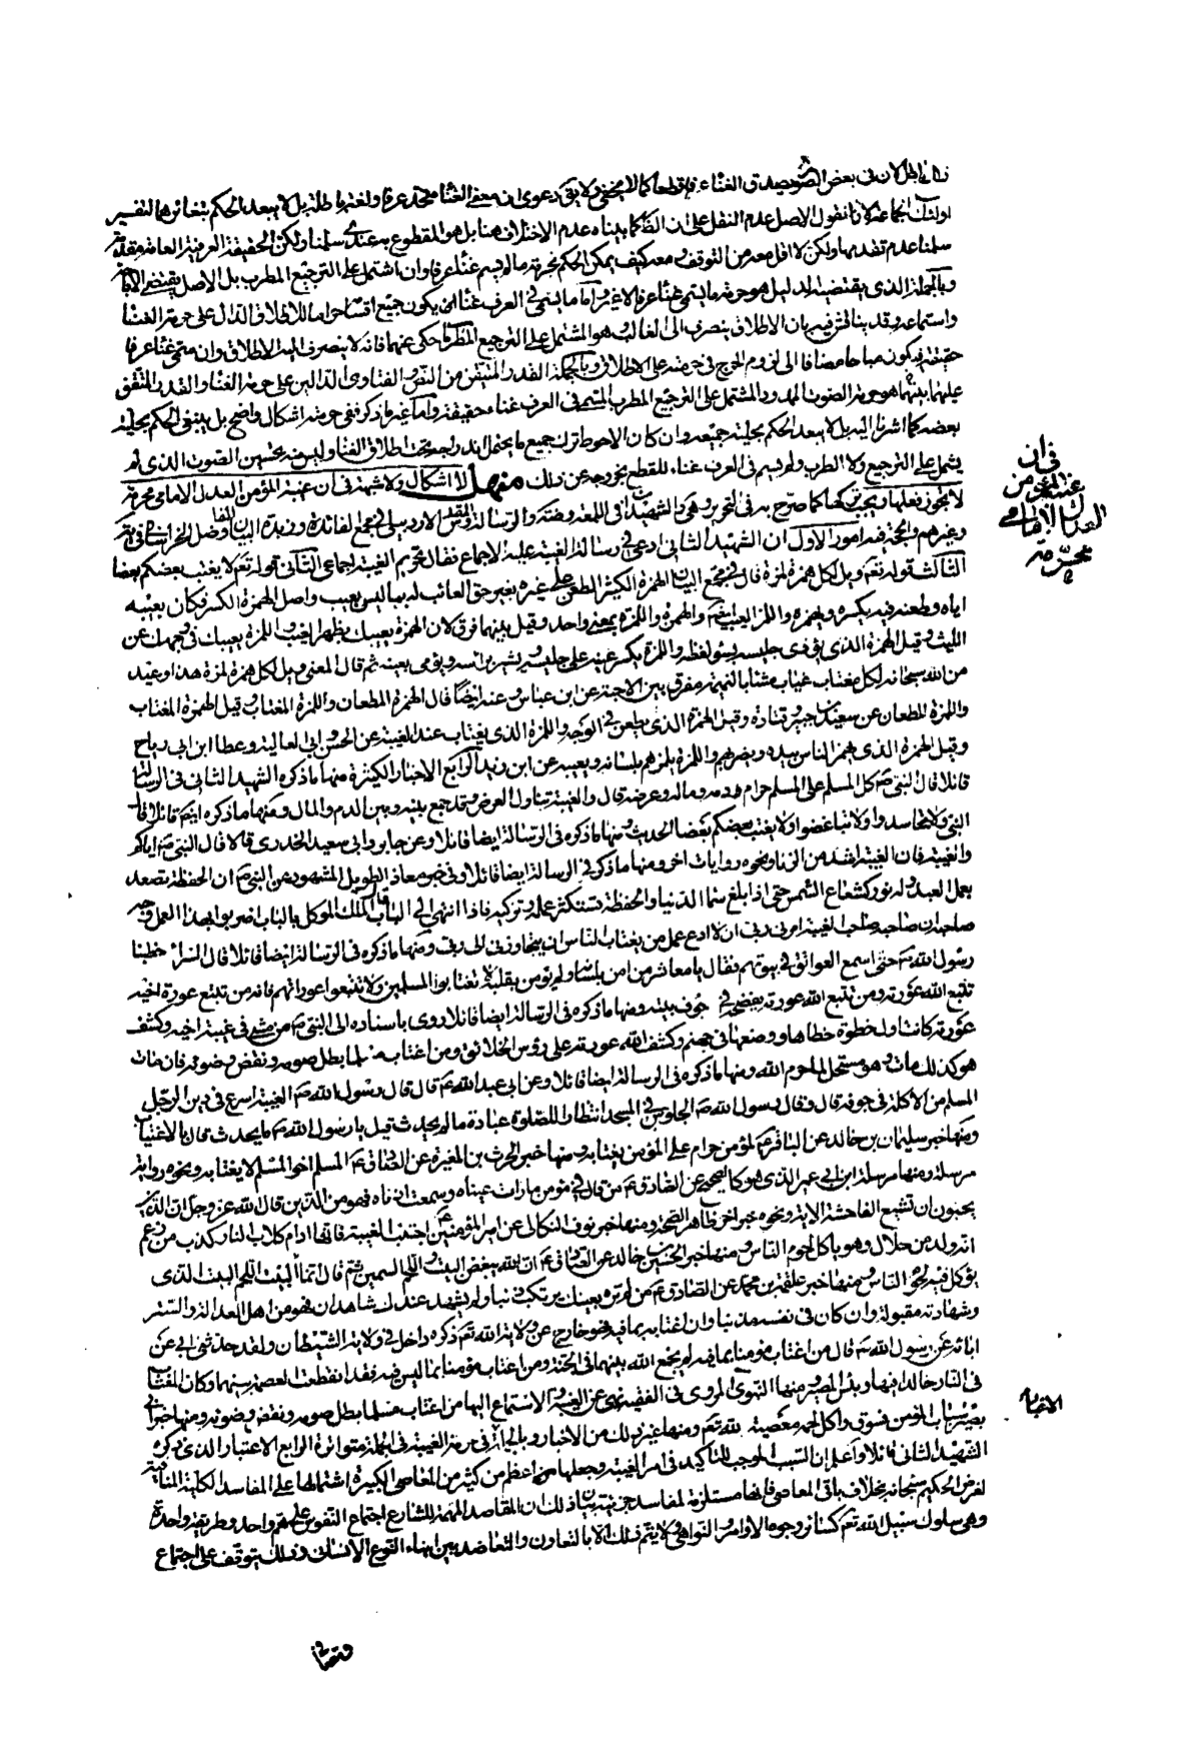 اولئك الجماعة لانا نقول الاصل عدم النقل على ان الظ كما بيناه عدم الاختلاف هنا بل هو المقطوع به عندى سلمنا ولكن الحقيقة العرفية العامة مقدمة
سلمنا عدم تقدمها ولكن لا اقل معه من التوقف ومعه كيف يمكن الحكم بحرمة ما لم يسم غناء عرفا وان اشتمل على الترجيع المطرب بل الاصل يقتضى الاباحة
وبالجملة الذى يقتضيه الدليل هو حرمة ما يسمى غناء عرفا لا غير واما ما يسمى فى العرف غناء
واستماعه وقد يناقش فيه بان الاطلاق ينصرف الى الغالب وهو المشتمل على الترجيع المطرب
حقيقة فيكون مباحا مضافا الى لزوم الحرج فى حرمته على الاطلاق وبالجملة القدر المتيقن من النص والفتاوى الدالين على حرمة الغناء والقدر المتفق
عليها بينهما هو حرمة الصوت الممدود المشتمل على الترجيع المطرب المسمى فى العرف غناء حقيقة واما غير ما ذكر ففى حرمته اشكال واضح بل ينبغى الحكم بحلية
بعضه كما اشرنا اليه بل لا يبعد الحكم بحلية جميعه وان كان الاحوط ترك جميع ما يحتمل اندراجه تحت اطلاق الغناء وليس منه تحسين الصوت الذى لم
يشتمل على الترجيع ولا الطرب ولم يسم فى العرف غناء للقطع بخروجه عن ذلك منهل لا اشكال ولا شبهة فى ان غيبة المؤمن العدل الامامى محرمة
لا يجوز فعلها ويجب تركها كما صرح به فى التحرير
وغيرهم والحجة فيه امور الاول ان الشهيد الثانى ادعى فى رسالة الغيبة عليه الاجماع فقال تحريم الغيبة اجماعى الثانى قوله تع لا يغتب بعضكم بعضا
الثالث قوله تع ويل لكل همزة لمزة قال فى مجمع البيان الهمزة الكثير الطعن على غيره بغير حق العائب له بما ليس بعيب واصل الهمز الكسر فكان بعيبه
اياه وطعنه فيه يكسره ويهمزه واللمز العيب ايضا والهمزة واللمزة بمعنى واحد وقيل بينهما فرق لان الهمزة يعيبك بظهر الغيب واللمزة يعيبك فى وجهك عن
الليث وقيل الهمزة الذى يؤذى جليسه بسوء لفظه واللمزة يكسر عينه على جليسه ويشير براسه ويؤمى بعينه ثم قال المعنى ويل لكل همزة لمزة هذا وعيد
من الله سبحانه لكل مغتاب عياب مشاء بالنميمة مفرق بين الاحبة عن ابن عباس وعنه ايضا قال الهمزة الطعان واللمزة المغتاب وقيل الهمزة المغتاب
واللمزة الطعان عن سعيد بن جبير وقتادة وقيل الهمزة الذى يطعن فى الوجه واللمزة الذى يغتاب عند الغيبة عن الحسن وابى العالية وعطا ابن ابى رباح
وقيل الهمزة الذى يهمز الناس بيده ويضربهم واللمزة يلمزهم بلسانه وبعينه عن ابن زيد الرابع الاخبار الكثيرة منها ما ذكره الشهيد الثانى فى الرسالة
قائلا قال النبى ص كل المسلم على المسلم حرام دمه وماله وعرضه قال والغيبة تناول العرض وقد جمع بينه وبين الدم والمال ومنها ما ذكره ايضا قائلا قال
النبى ولا تحاسدوا ولا تباغضوا ولا يغتب بعضكم بعضا الحديث ومنها ما ذكره فى الرسالة ايضا قائلا وعن جابر وابى سعيد الخدرى قالا قال النبى ص اياكم
والغيبة فان الغيبة اشد من الزنا ونحوه روايات اخر ومنها ما ذكره فى الرسالة ايضا قائلا وفى خبر معاذ الطويل المشهور عن النبى ص ان الحفظة تصعد
بعمل العبد وله نور كشعاع الشمس حتى اذا بلغ سماء الدنيا والحفظة تستكثر عمله وتزكيه فاذا انتهى الى الباب قال الملك الموكل بالباب اضربوا بهذا العمل وجه
صاحبه انا صاحب الغيبة امرنى ربى ان لا ادع عمل من يغتاب الناس ان يتجاوزنى الى ربى ومنها ما ذكره فى الرسالة ايضا قائلا قال البراء خطبنا
رسول الله ص حتى اسمع العواتق فى بيوتهم فقال يا معاشر من امن بلسانه ولم يؤمن بقلبه لا تغتابوا المسلمين ولا تتبعوا عوراتهم فانه من تتبع عورة اخيه
تتبع الله عورته ومن تتبع الله عورته يفضحه فى جوف بيته ومنها ما ذكره فى الرسالة ايضا قائلا روى باسناده الى النبى ص من مشى فى غيبة اخيه وكشف
عورته كانت اول خطوة خطاها وضعها فى جهنم وكشف الله عورته على رؤس الخلائق ومن اغتاب مسلما بطل صومه ونقض وضوئه فان مات
هو كذلك مات وهو مستحل لما حرم الله ومنها ما ذكره فى الرسالة ايضا قائلا وعن ابى عبد الله ع قال قال رسول الله ص الغيبة اسرع فى دين الرجل
المسلم من الاكلة فى جوفه قال وقال رسول الله ص الجلوس فى المسجد انتظارا للصلوة عبادة ما لم يحدث قيل يا رسول الله ص ما يحدث قال الاغتياب
ومنها خبر سليمان بن خالد عن الباقر ع المؤمن حرام على المؤمن يغتابه ومنها خبر الحرث بن المغيرة عن الصادق ع المسلم اخو المسلم لا يغتابه ونحوه رواية
مرسلة ومنها مرسلة ابن ابى عمير الذى هو كالصحيح عن الصادق ع من قال فى مؤمن ما رات عيناه وسمعت اذناه فهو من الذين قال الله عز وجل ان الذين
يحبون ان تشيع الفاحشة الاية ونحوه خبر اخر ظاهر الصحة ومنها خبر نوف البكالى عن امير المؤمنين ع اجتنب الغيبة فانها ادام كلاب النار وكذب من زعم
انه ولد من حلال وهو ياكل لحوم الناس ومنها خبر الحسين بن خالد عن الصادق ع ان الله يبغض البيت اللحم واللحم السمين ثم قال انما البيت اللحم البيت الذى
يؤكل فيه لحوم الناس ومنها خبر علقمة بن محمد عن الصادق ع من لم تره بعينك يرتكب ذنبا ولم يشهد عندك شاهدان فهو من اهل العدالة والستر
وشهادته مقبولة وان كان فى نفسه مذنبا وان اغتابه بما فيه فهو خارج عن ولاية الله تع ذكره داخل فى ولاية الشيطان ولقد حدثنى ابى عن
ابائه عن رسول الله ص قال من اغتاب مؤمنا بما فيه لم يجمع الله بينهما فى الجنة ومن اغتاب مؤمنا بما ليس فيه فقد انقطعت العصمة بينهما وكان المغتاب
فى النار خالدا فيها وبئس المصير ومنها النبوى المروى فى الفقيه نهى عن الغيبة والاستماع اليها من اغتاب مسلما بطل صومه ونقض وضوئه ومنها خبر
سباب المؤمن فسوق واكل لحمه معصية لله تع ومنها غير ذلك من الاخبار وبالجملة الاخبار فى حرمة الغيبة فى الجملة متواترة الرابع الاعتبار الذى ذكره
الشهيد الثانى قائلا واعلم ان السبب الموجب للتاكيد فى امر الغيبة وجعلها اعظم من كثير من المعاصى الكبيرة اشتمالها على المفاسد الكلية المنافية
لغرض الحكيم سبحانه بخلاف باقى المعاصى فانها مستلزمة لمفاسد جزئية بيان ذلك ان المقاصد المهمة للشارع اجتماع النفوس على هم واحد وطريقة واحدة
وهى سلوك سبيل الله تع كسائر وجوه الاوامر والنواهى ولا يتم ذلك الا بالتعاون والتعاضد بين ابناء النوع الانسانى وذلك يتوقف على اجتماع
فى ان
غيبة المؤمن
العدل الامامى
محرمة